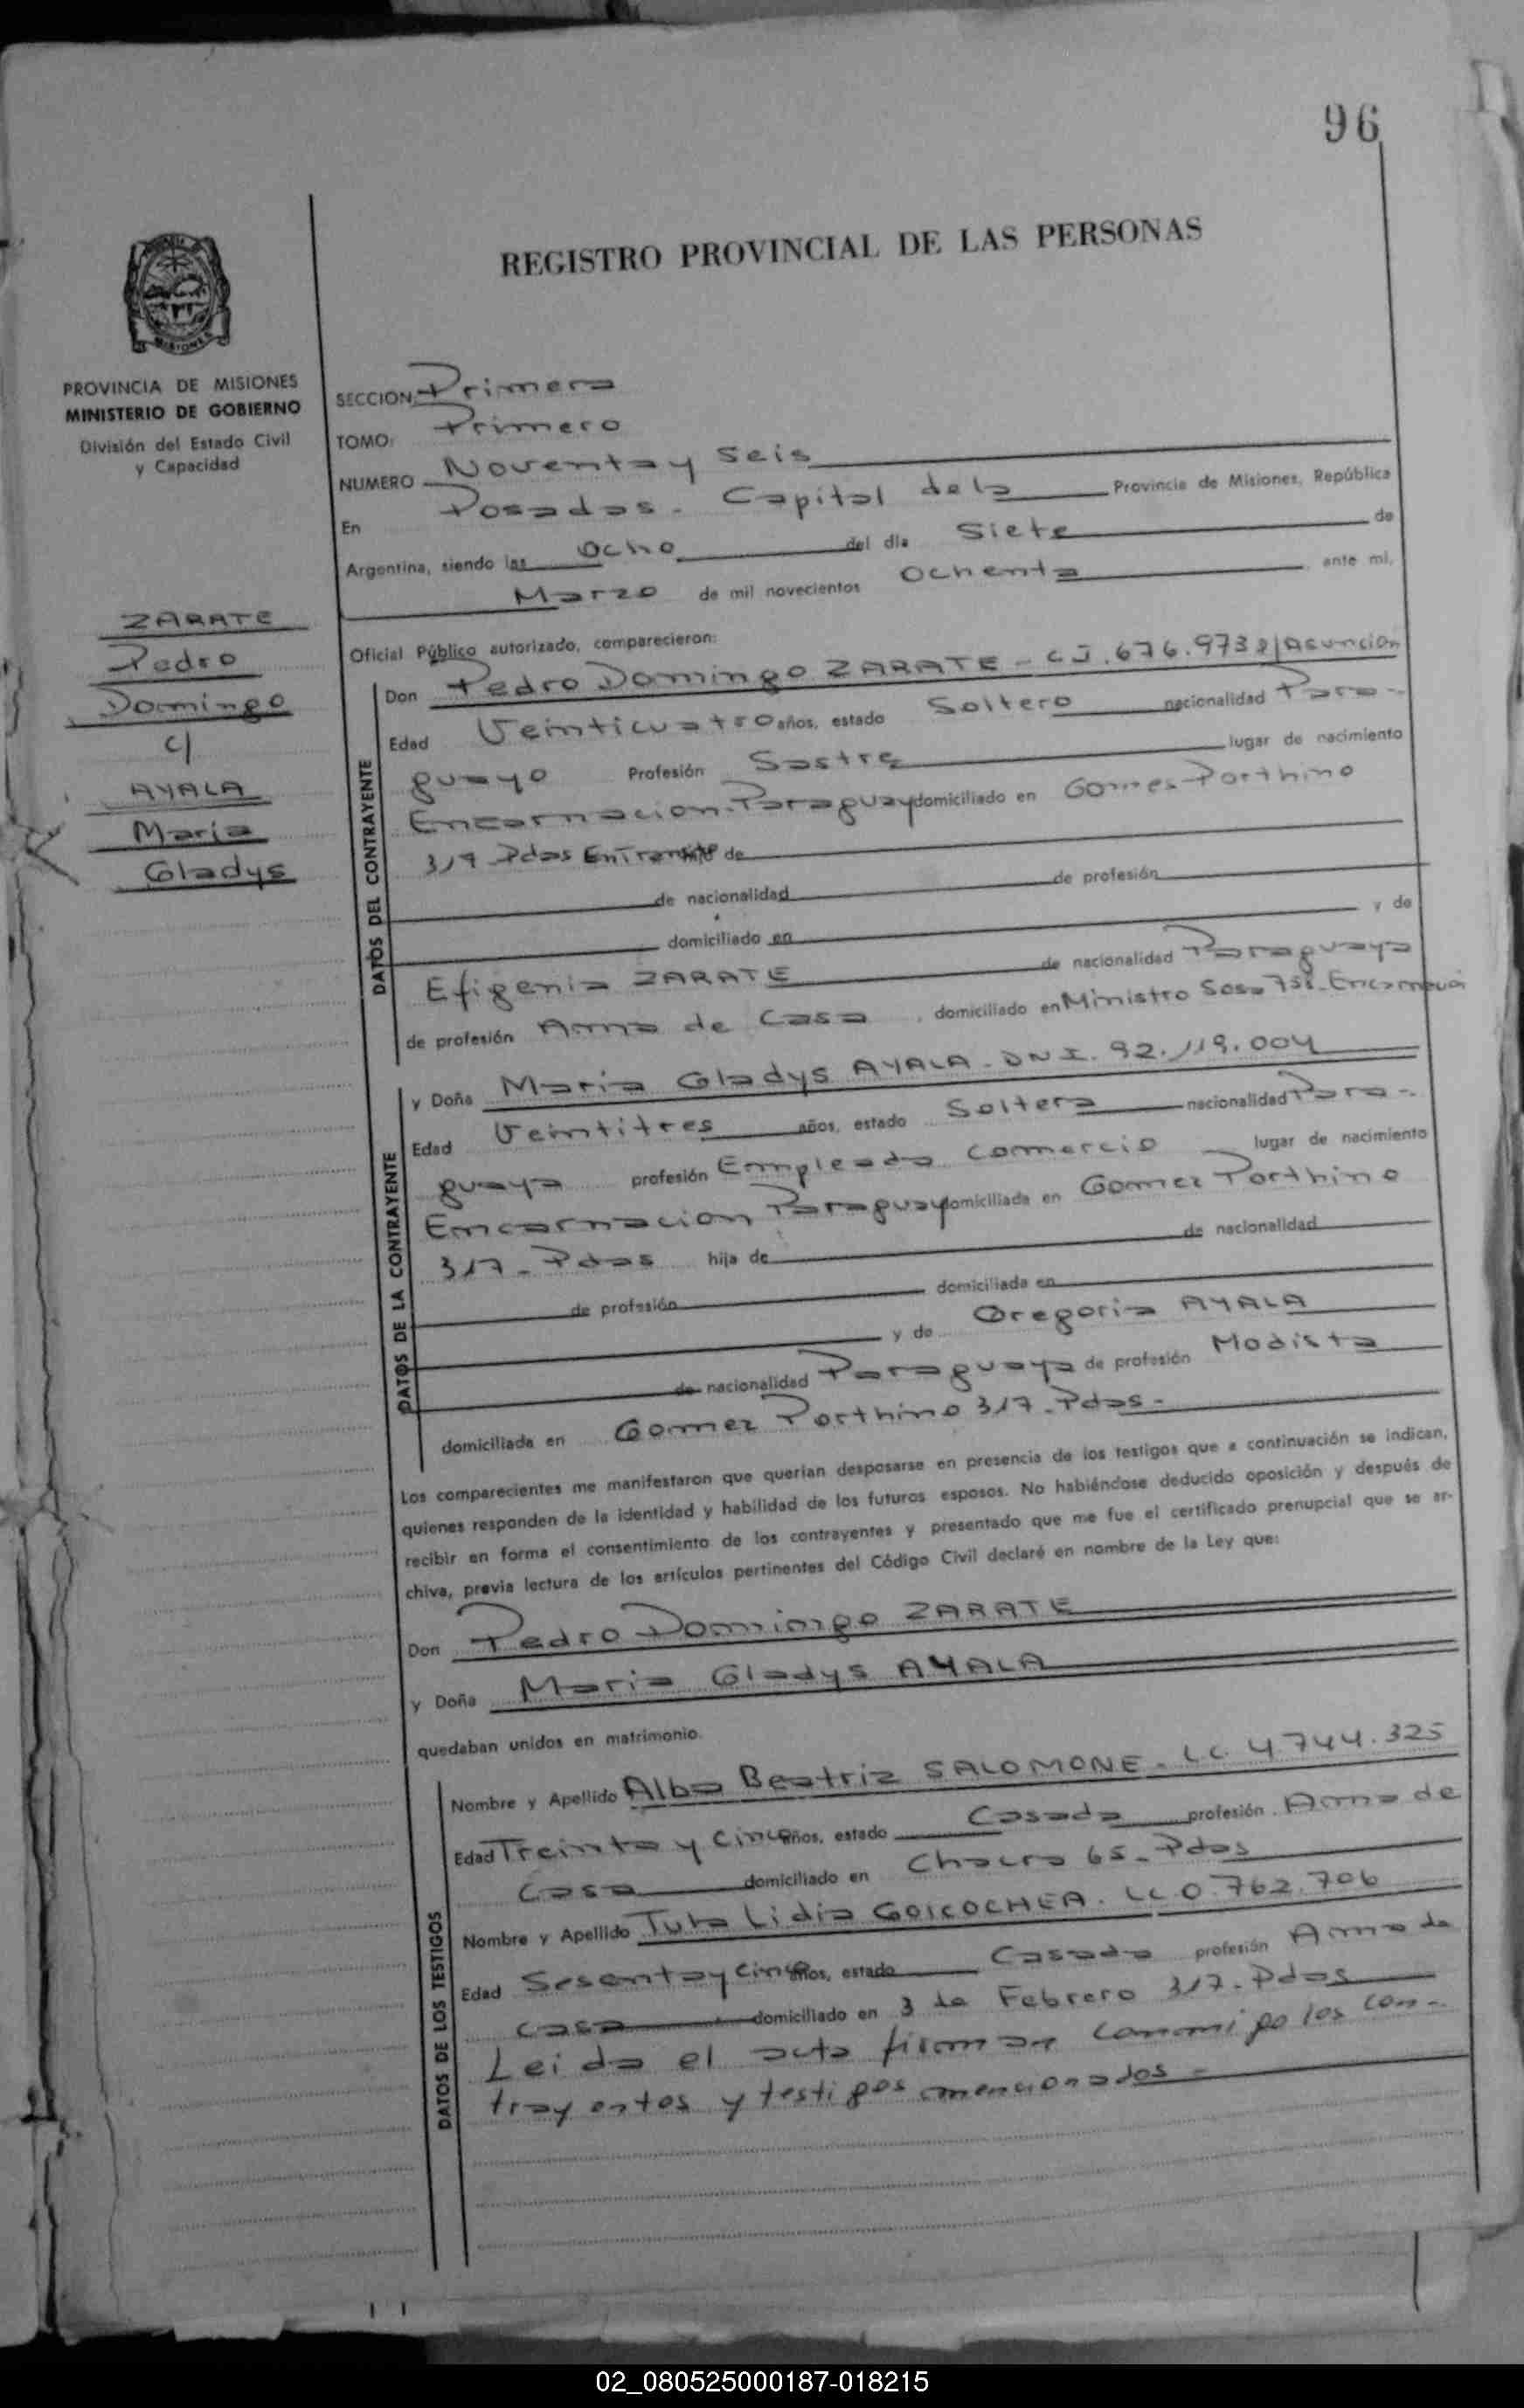 96
REGISTRO PROVINCIAL DE LAS PERSONAS
MISIONES
PROVINCIA DE MISIONES
MINISTERIO DE GOBIERNO
División del Estado Civil
y Capacidad
ZARATE
Pedro
Domingo
c/
AYALA
Maria
Gladys
SECCION: Primera
TOMO: Primero
NUMERO Noventa y Seis
En Posadas. Capital de la Provincia de Misiones, República
Argentina, siendo las Ocho del día Siete de
Marzo de mil novecientos Ochenta ante mí,
Oficial Público autorizado, comparecieron:
DATOS DEL CONTRAYENTE
Don Pedro Domingo ZARATE - C.I. 676.973 Asuncion
Edad Veinticuatro años, estado Soltero nacionalidad Para-
guayo Profesión Sastre lugar de nacimiento
Encarnacion. Paraguay domiciliado en Gomes Porthino
317 Pdas En Transito hijo de
de nacionalidad de profesión
domiciliado en y de
Efigenia ZARATE de nacionalidad Paraguaya
de profesión Ama de Casa , domiciliado en Ministro Sosa 758 - Encarnacion
DATOS DE LA CONTRAYENTE
y Doña Maria Gladys AYALA - DNI. 92.119.004
Edad Veintitres años, estado Soltera nacionalidad Para-
guaya profesión Empleada Comercio lugar de nacimiento
Encarnacion Paraguay domiciliada en Gomez Porthino
317 - Pdas hija de de nacionalidad
de profesión domiciliada en
y de Gregoria AYALA
de nacionalidad Paraguaya de profesión Modista
domiciliada en Gomez Porthino 317 - Pdas -
Los comparecientes me manifestaron que querían desposarse en presencia de los testigos que a continuación se indican,
quienes responden de la identidad y habilidad de los futuros esposos. No habiéndose deducido oposición y después de
recibir en forma el consentimiento de los contrayentes y presentado que me fue el certificado prenupcial que se ar-
chiva, previa lectura de los artículos pertinentes del Código Civil declaré en nombre de la Ley que:
Don Pedro Domingo ZARATE
y Doña Maria Gladys AYALA
quedaban unidos en matrimonio.
DATOS DE LOS TESTIGOS
Nombre y Apellido Alba Beatriz SALOMONE - LC. 4.744.325
Edad Treinta y Cinco años, estado Casada profesión Ama de
Casa domiciliado en Chacra 65 - Pdas
Nombre y Apellido Tuta Lidia GOICOCHEA. LC 0.762.706
Edad Sesenta y cinco años, estado Casada profesión Ama de
casa domiciliado en 3 de Febrero 317 - Pdas
Leida el acta firman conmigo los con-
trayentes y testigos mencionados -
02_080525000187-018215